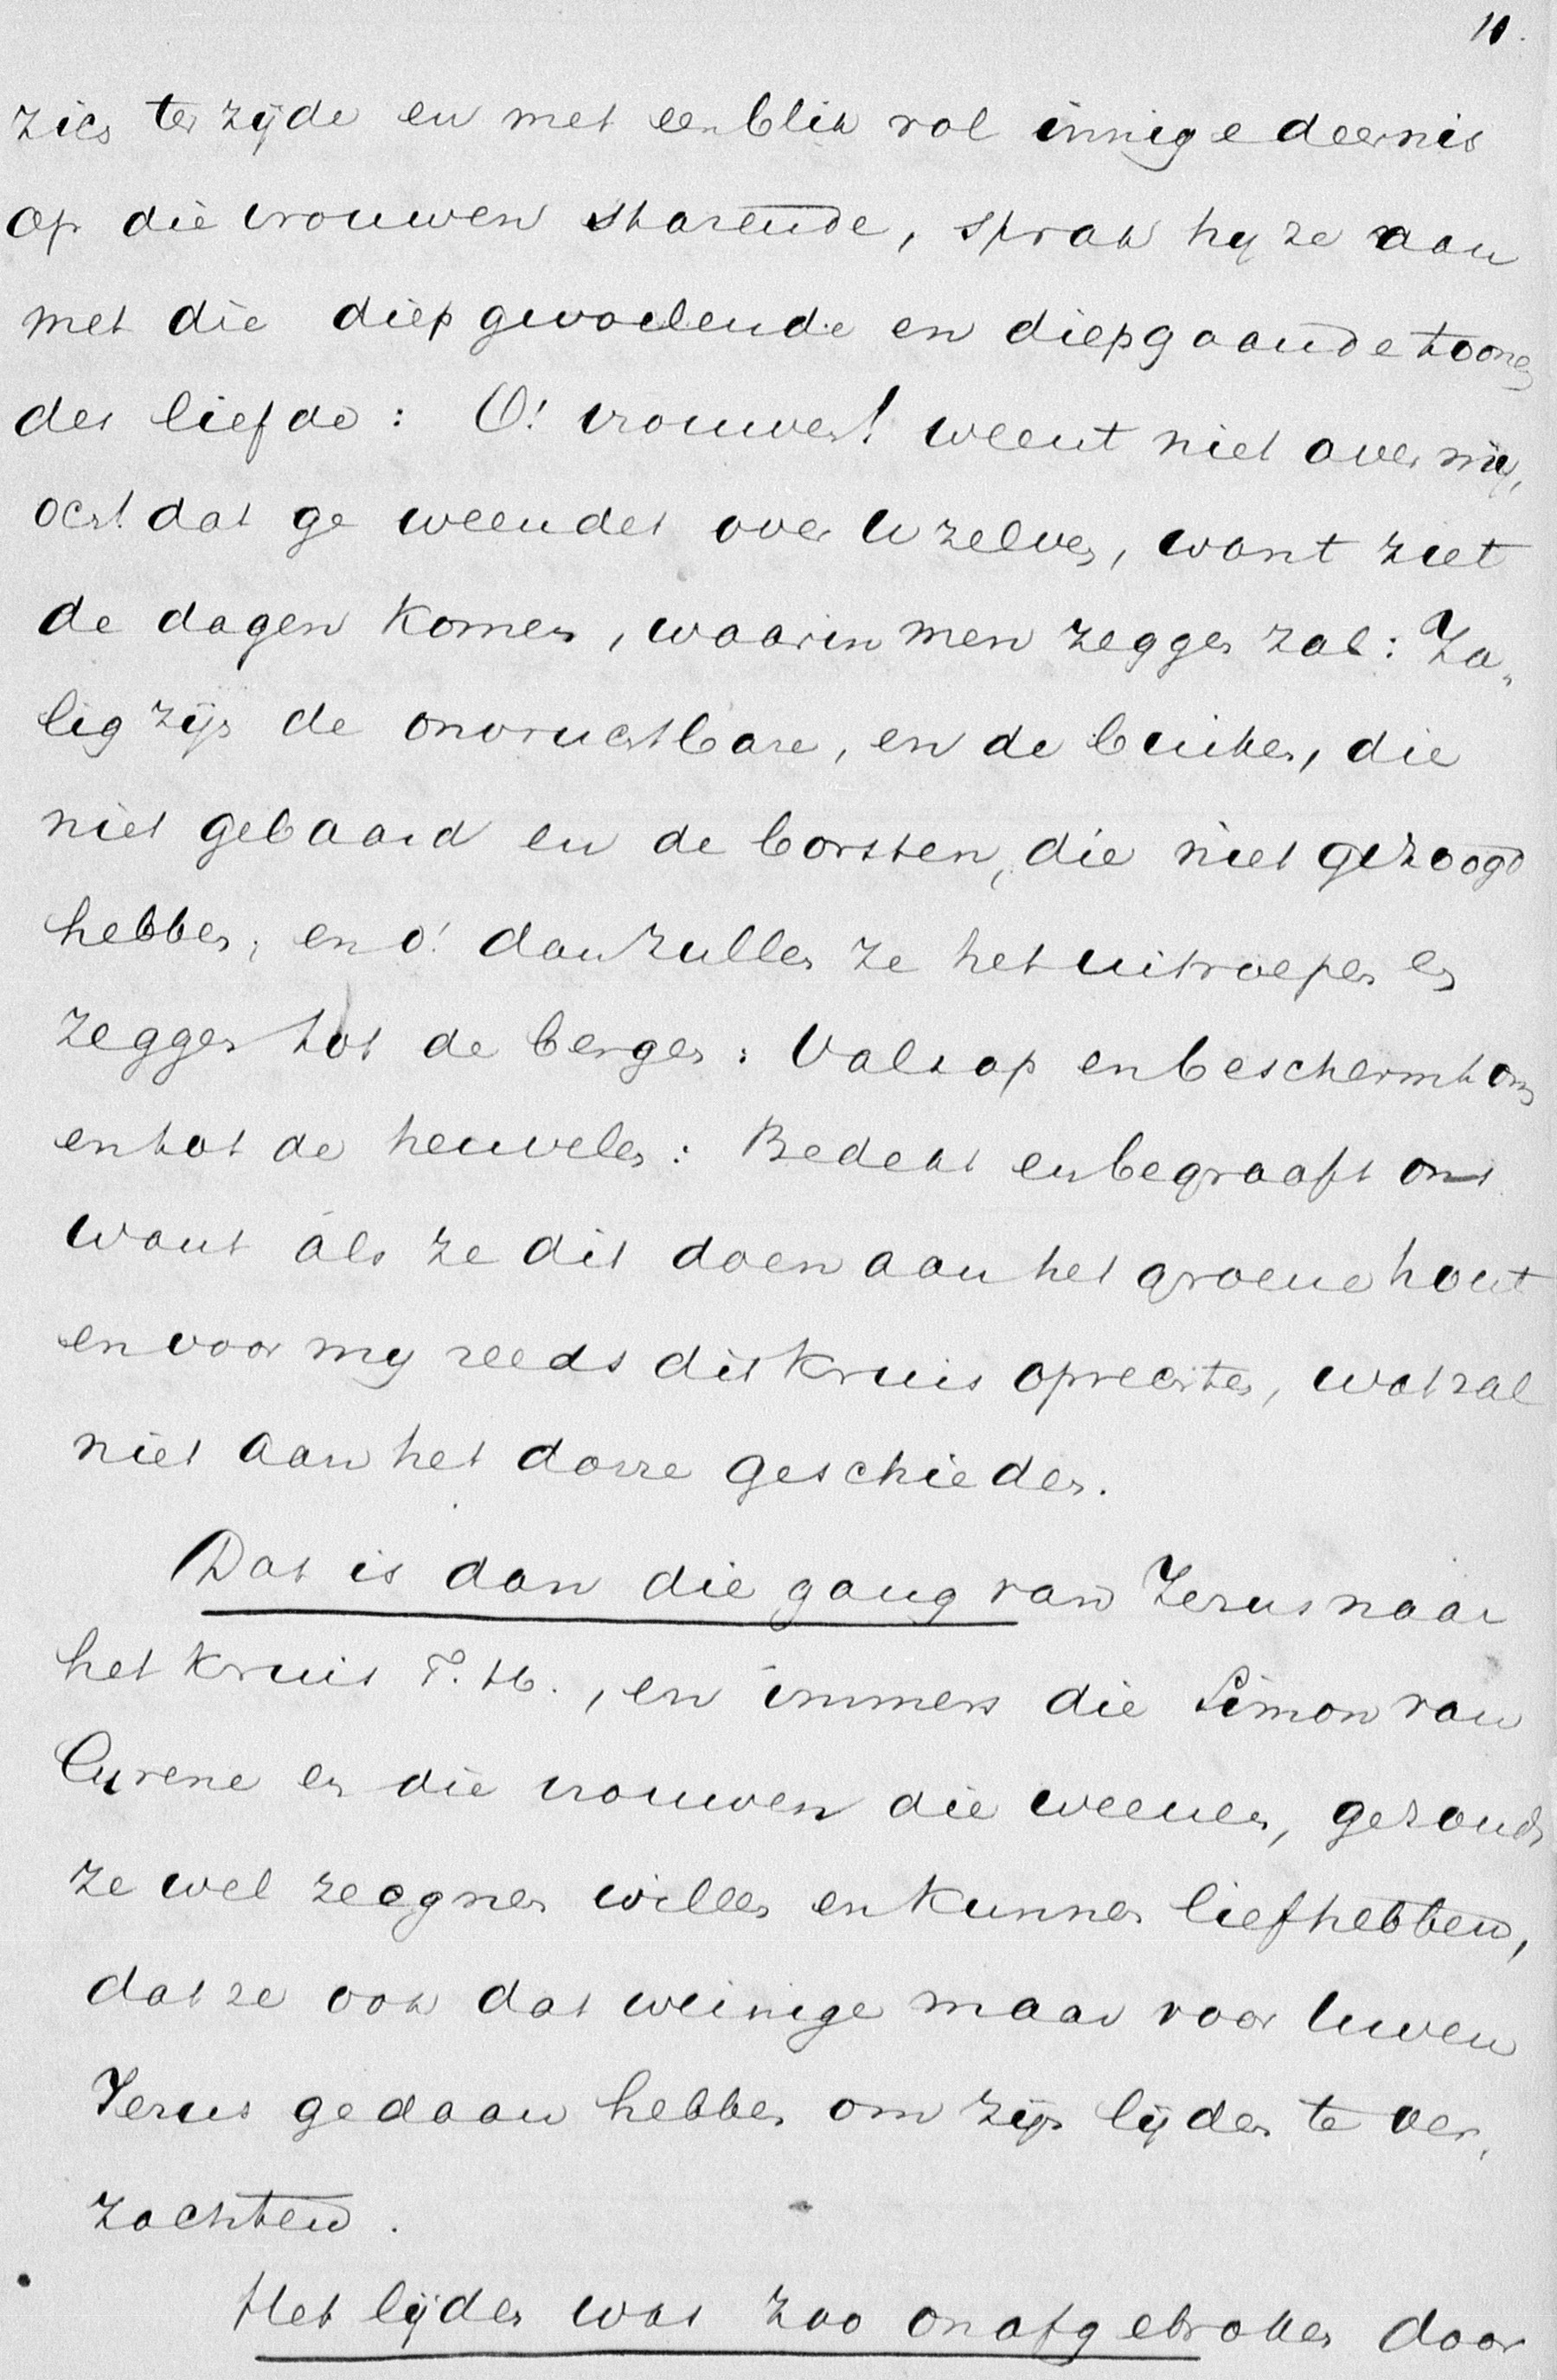 10.
zich ter zijde en met een blik vol innige deernis
op die vrouwen starende, sprak hij ze aan
met die diep gevoelende en diepgaande toonen
der liefde: O! vrouwen! weent niet over mij,
och! dat ge weendet over Uzelven, want ziet
de dagen komen, waarin men zeggen zal: Za„
lig zijn de onvruchtbare, en de buiken, die
niet gebaard en de borsten, die niet gezoogd
hebben; en o! dan zullen ze het uitroepen en
zeggen tot de bergen: Valt op en beschermt ons
en tot de heuvelen: Bedekt en begraaft ons
want als ze dit doen aan het groene hout
en voor mij reeds dit kruis oprechten, wat zal
niet aan het dorre geschieden.
Dat is dan die gang van Jezus naar
het kruis T. H., en immers die Simon van
Cyrene en die vrouwen die weenen, ge zoudt
ze wel zeegnen willen en kunnen liefhebben,
dat ze ook dat weinige maar voor Uwen
Jezus gedaan hebben om zijn lijden te ver„
zachten.
Het lijden was zoo onafgebroken door